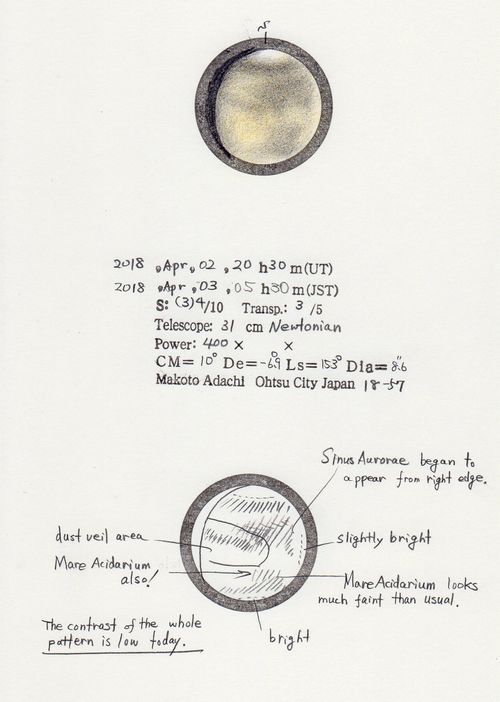 S
2018 , Apr, 02 , 20 h30 m(UT)
2018 , Apr, 03 , 05 h30 m(JST)
S: (3)4/10 Transp.: 3 /5
Telescope: 31 cm Newtonian
Power: 400 × ×
CM= 10° De= -6.9° Ls= 153° Dia= 8.6"
Makoto Adachi Ohtsu City Japan 18-57
Sinus Aurorae began to
appear from right edge.
dust veil area
slightly bright
Mare Acidarium
also!
Mare Acidarium looks
much faint than usual.
The contrast of the whole
pattern is low today.
bright